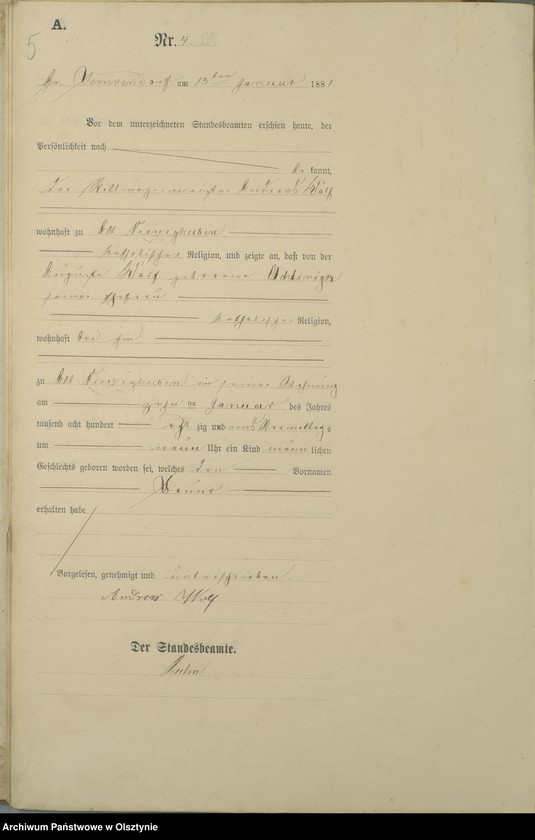 A.
5
Nr. 4.
Gr. am 13ten Januar 1881
Vor dem unterzeichneten Standesbeamten erschien heute, der
Persönlichkeit nach
be kannt,
der Andreas Wolf
wohnhaft zu Alt
katholischer Religion, und zeigte an, daß von der
Auguste Wolf geborene
seiner Ehefrau
katholischer Religion,
wohnhaft bei ihm
zu Alt in seiner Wohnung
am zehnten Januar des Jahres
tausend acht hundert acht zig und eins Vormittags
um neun Uhr ein Kind männ lichen
Geschlechts geboren worden sei, welches den Vornamen
Bruno
erhalten habe
Vorgelesen, genehmigt und unterschrieben
Andreas Wolf
Der Standesbeamte.
Archiwum Państwowe w Olsztynie